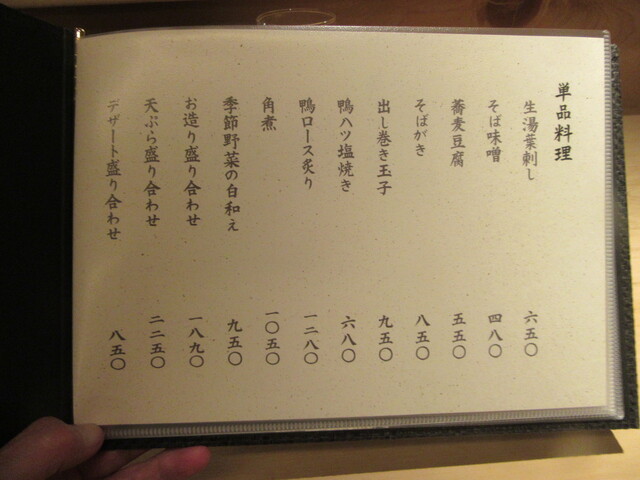 単品料理
生湯葉刺し 六五〇
そば味噌 四八〇
蕎麦豆腐 五五〇
そばがき 八五〇
出し巻き玉子 九五〇
鴨ハツ塩焼き 六八〇
鴨ロース炙り 一二八〇
角煮 一〇五〇
季節野菜の白和え 九五〇
お造り盛り合わせ 一八九〇
天ぷら盛り合わせ 二二五〇
デザート盛り合わせ 八五〇